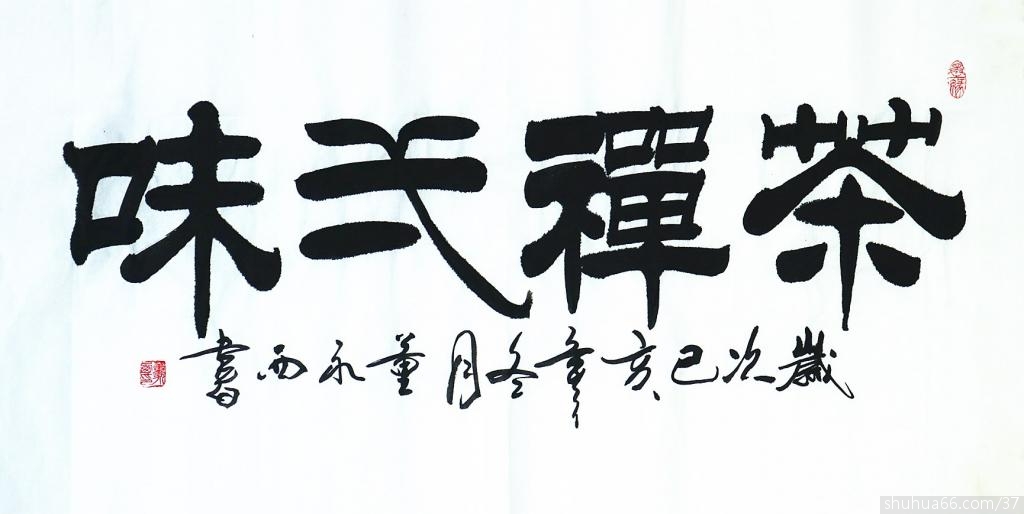 茶禪弌味
歲次己亥年冬月董永西書
shuhua66.com/37